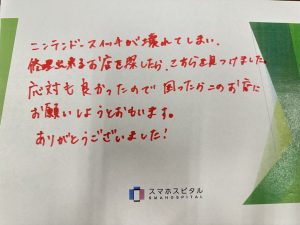 ニンテンドースイッチが壊れてしまい、
修理出来るお店を探したら、こちらを見つけました。
応対も良かったので 困ったらこのお店に
お願いしようとおもいます。
ありがとうございました!
スマホスピタル
SMAHOSPITAL